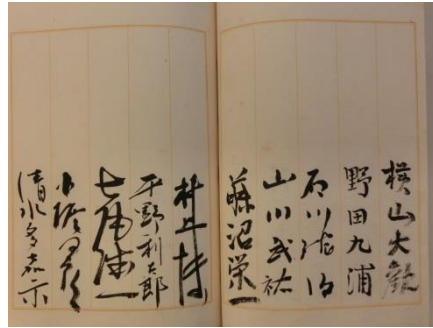 横山大観
野田九浦
石川
山川武祐
藤沼栄一
村上
平野利太郎
七尾
小
清水多嘉示